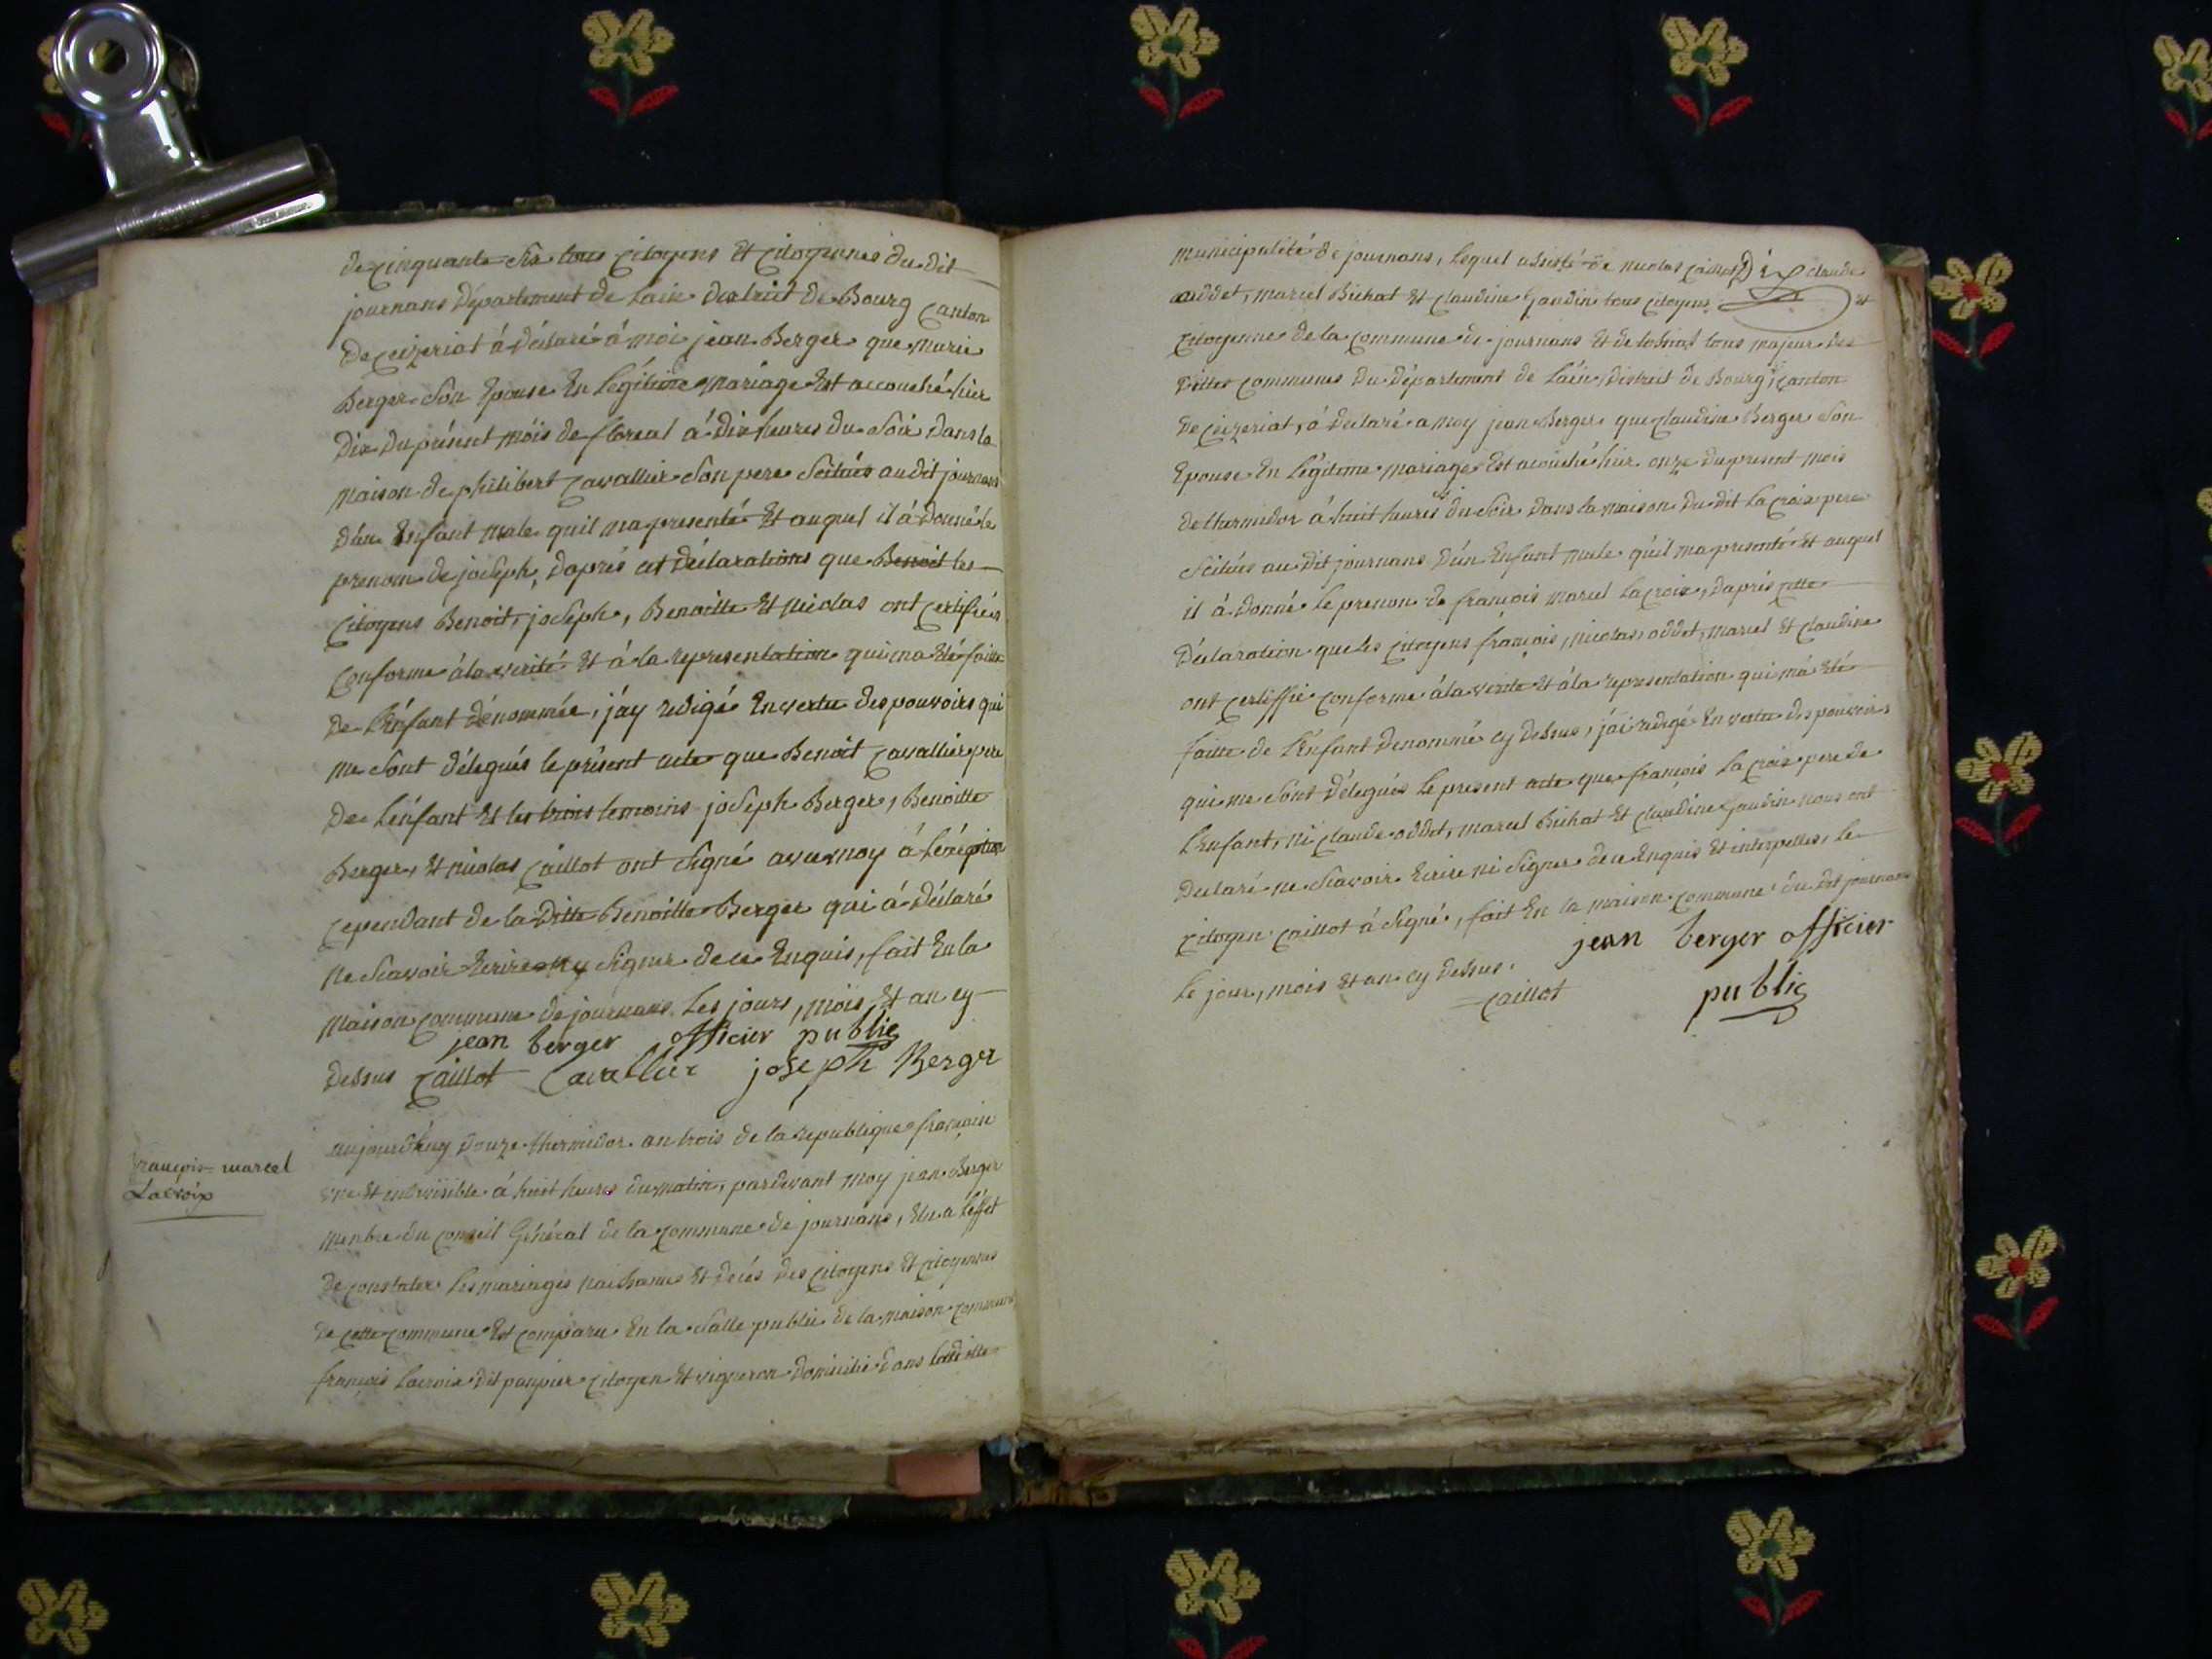 de cinquante six tous citoyens et citoyennes du dit
journans département de Lain district de Bourg canton
de ceizeriat à déclaré à moi jean Berger que marie
Berger son Epouse En légitime mariage Est accouché hier
dix du présent mois de floreal à dix heures du soir dans la
maison de philibert Cavallier son pere scituée au dit journans
d'un Enfant male quil ma presenté Et auquel il à donné le
prenom de joseph, daprés cet déclarations que Benoit les
Citoyens Benoit, joseph, Benoitte Et nicolas ont certifiées
conforme à la verité Et à la representation qui ma Eté faitte
de l'Enfant dénommée, j'ay redigé En vertu des pouvoirs qui
me sont délegués le présent acte que Benoit Cavallier pere
de l'énfant Et les trois temoins joseph Berger, Benoitte
Berger, Et nicolas Caillot ont signé avec moy à l'éxception
cependant de la ditte Benoitte Berger qui à déclaré
ne scavoir Ecrire ny signer de ce Enquis, fait En la
maison commune de journans Les jours, mois Et an cy
jean berger officier public
dessus Caillot Cavallier joseph Berger
aujourdhuy douze thermidor an trois de la republique française
françois marcel
Lacroix
une Et indivisible à huit heures du matin, pardevant moy jean Berger
menbre du conseil Général de la commune de journans, Elu a l'éffet
de constater les mariages naissances Et decés des citoyens Et citoyennes
de cette commune Est comparu En la salle public de la maison commune
françois Lacroix dit panpier citoyen Et vigneron domicilié dans laditte
municipalité de journans, lequel assisté de nicolas caillot claude
oddet, marcel Bichat Et claudine Gaudin tous citoyens Et
citoyenne de la commune de journans Et de tossiat tous majeur des
dittes communes du département de Láin, district de Bourg, canton
de ceizeriat, à déclaré a moy jean Berger que claudine Berger son
Epouse En légitime mariage Est acouché hier onze du present mois
de thermidor à huit heures du soir dans la maison du dit La croix pere
scituée au dit journans d'un Enfant male quil ma presenté Et auquel
il à donné le prenon de françois marcel Lacroix, daprés cette
déclaration que les citoyens françois, nicolas, oddet, marcel Et claudine
ont certiffié conforme à la verité Et à la representation qui má Eté
faitte de l'Enfant denommé cy dessus, j'ai redigé En vertu des pouvoirs
qui me sont délegués le present acte que françois La croix pere de
l'Enfant, ni claude oddet, marcel Bichat Et claudine Gaudin nous ont
declaré ne scavoir Ecrire ni signer de ce Enquis Et interpellés, le
citoyen caillot à signé, fait En la maison commune du dit journans
le jour, mois Et an cy dessus. jean berger officier
caillot public